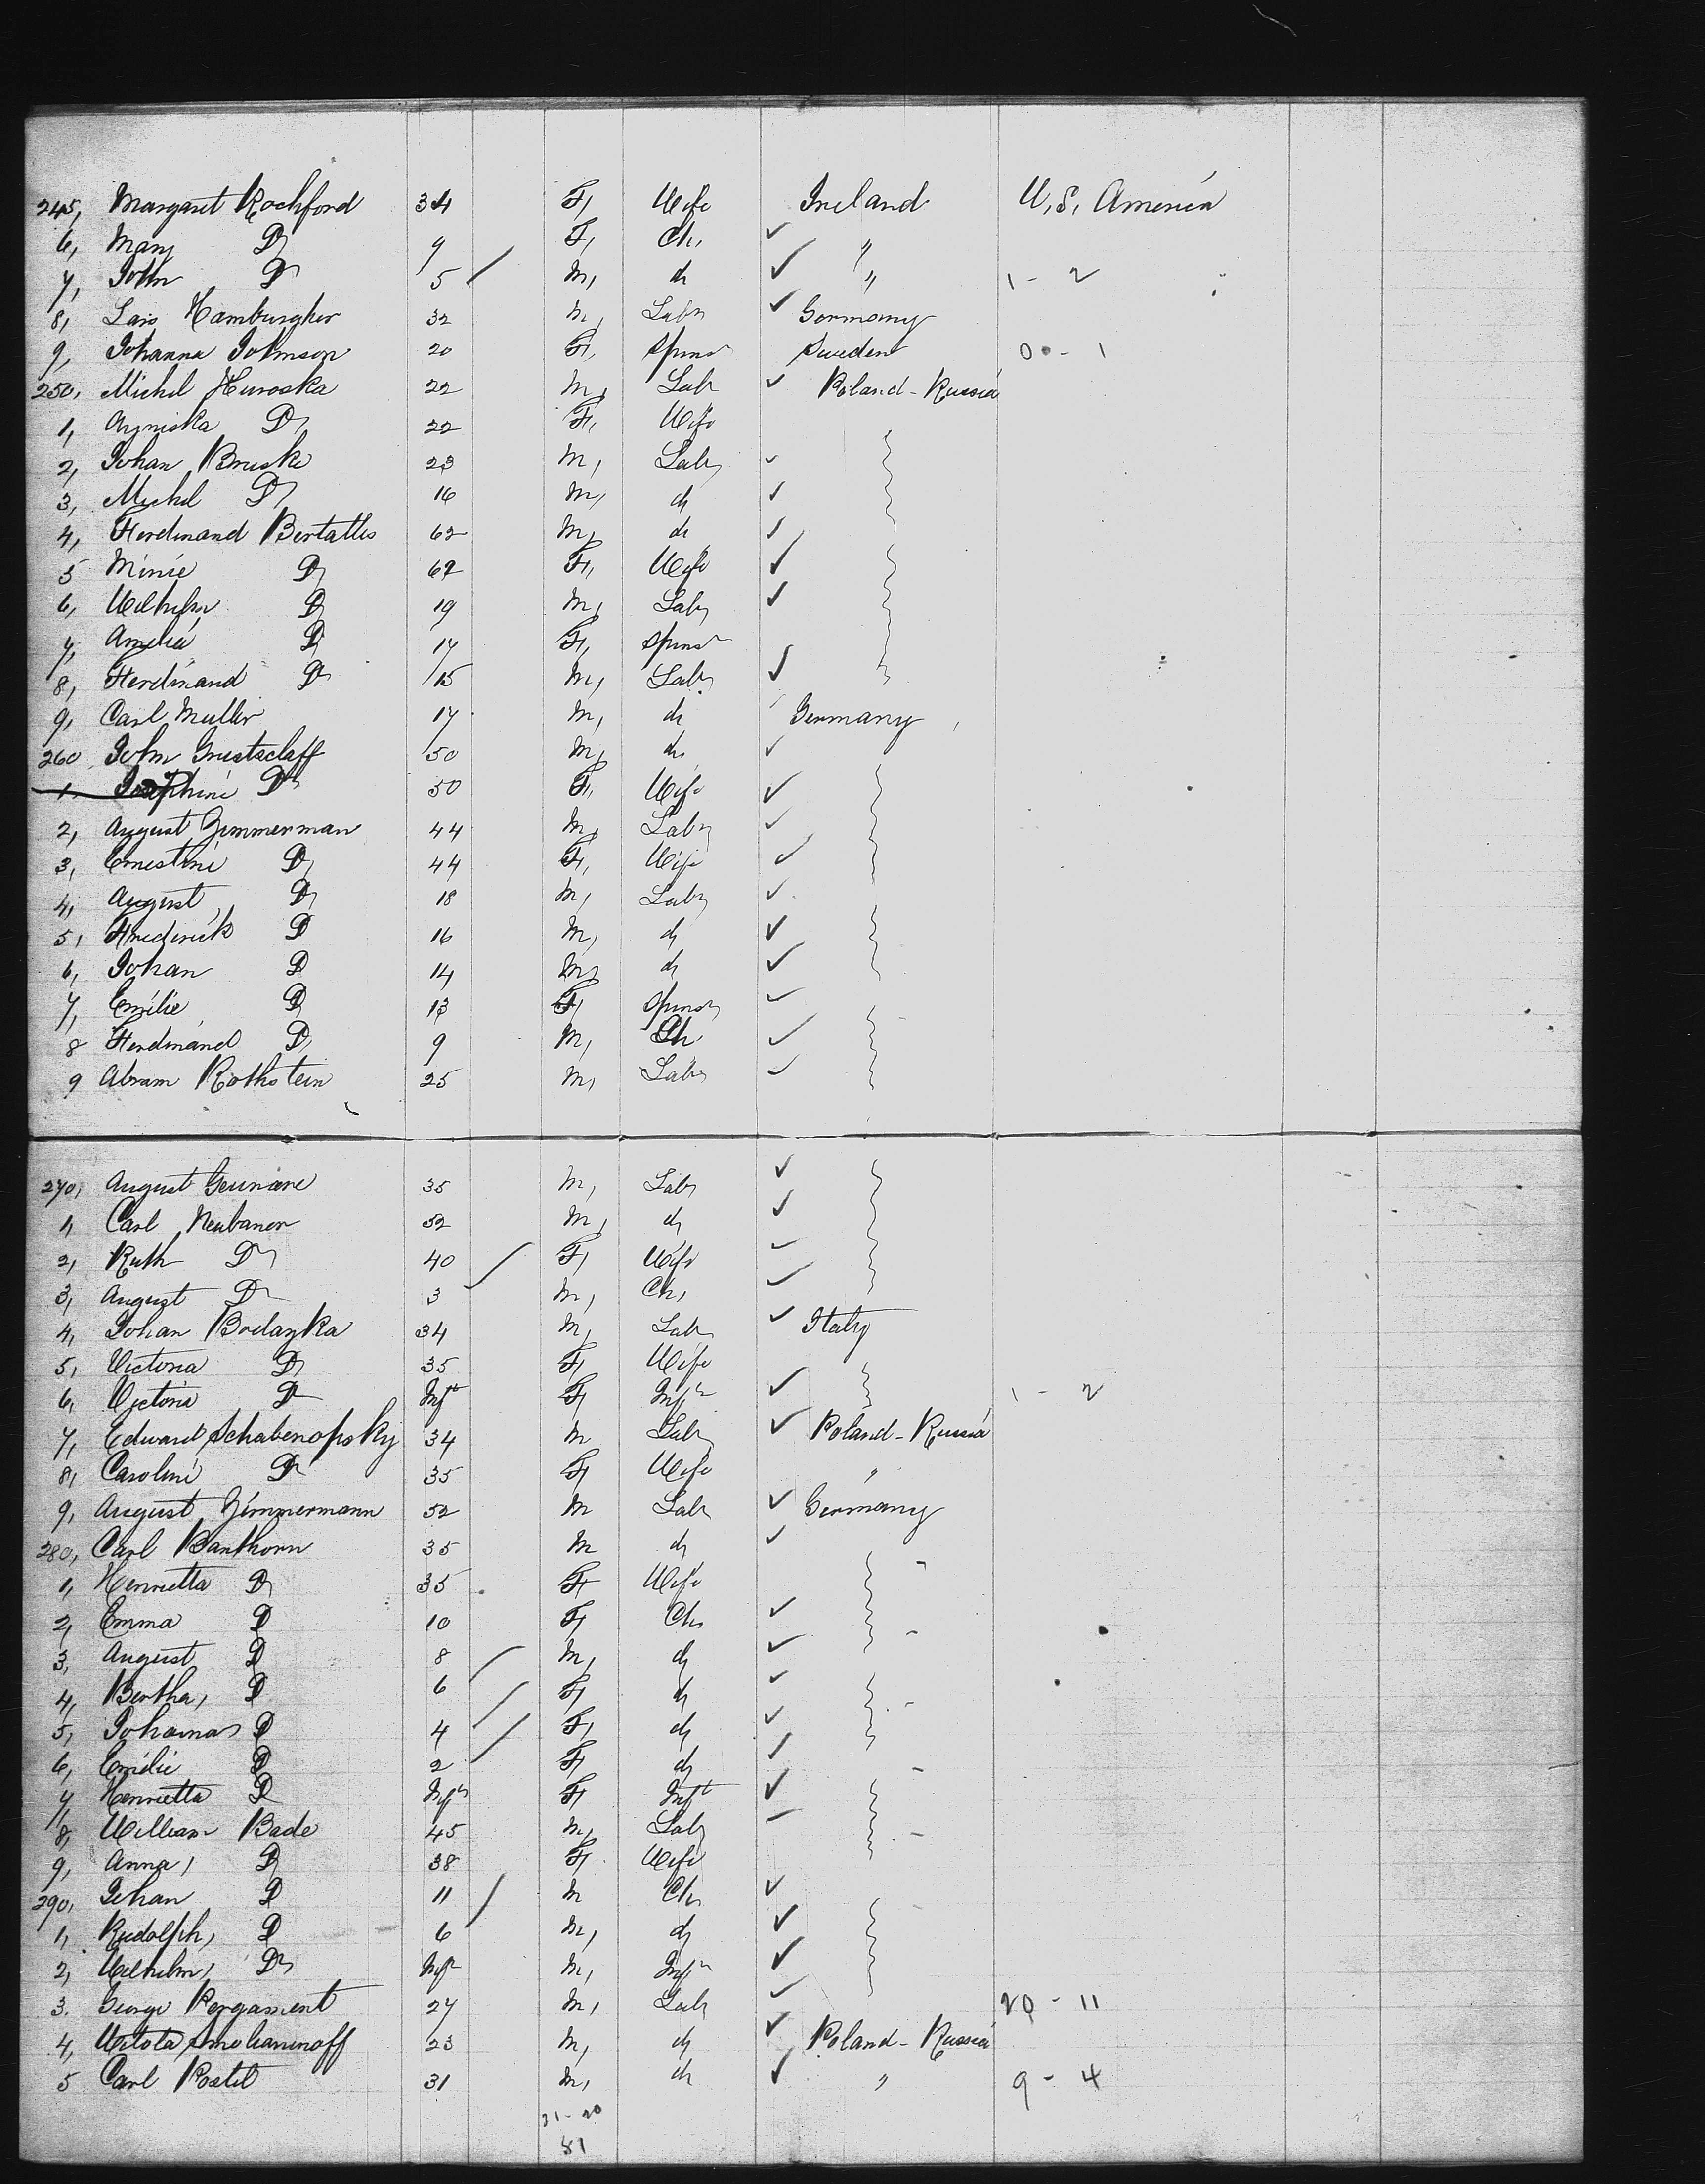 245, Margaret Rochford 34 F, Wife Ireland U.S. America
6, Mary D 9 F, Ch, ✓ "
7, John D 5 / M, d ✓ " 1 - 2
8, Hamburgher 32 M, Labr ✓ Germany
9, Johanna Johnson 20 F, Spinsr Sweden 0 - 1
250, Michel 22 M, Labr ✓ Poland - Russia
1, Agniska D 22 F, Wife
2, Johan Bruske 23 M, Labr ✓
3, Michel D 16 M, d ✓
4, Ferdinand 62 M, d ✓
5 Minie D 62 F, Wife ✓
6, Wilhelm D 19 M, Labr ✓
7, Amelia D 17 F, Spinsr
8, Ferdinand D 15 M, Labr ✓
9, Carl Muller 17 M, d Germany
260 John 50 M, d ✓
1, Josephine D 50 F, Wife ✓
2, August Zimmerman 44 M, Labr ✓
3, Ernestine D 44 F, Wife ✓
4, August D 18 M, Labr ✓
5, Frederick D 16 M, d ✓
6, Johan D 14 M, d ✓
7, Emilie D 13 F, Spinsr ✓
8 Ferdinand D 9 M, Ch ✓
9 Abram Rothstein 25 M, Labr ✓
270, August 35 M, Labr ✓
1, Carl Neubaner 52 M, d ✓
2, Ruth D 40 F, Wife ✓
3, August D 3 / M, Ch, ✓
4, Johan 34 M, Labr ✓ Italy
5, Victoria D 35 F, Wife
6, Victoria D Inft F, Inft ✓ 1 - 2
7, Edward Schabenopsky 34 M Labr ✓ Poland - Russia
8, Caroline D 35 F, Wife "
9, August Zimmermann 52 M Labr ✓ Germany
280, Carl Banthorn 35 M d ✓
1, Henrietta D 35 F Wife
2, Emma D 10 F, Ch ✓
3, August D 8 M, d ✓
4, Bertha, D 6 / F, d ✓
5, Johanna D 4 / F, d ✓
6, Emilie D 2 / F, d ✓
7, Henrietta D Inft F, Inft ✓
8, William Bade 45 M, Labr
9, Anna, D 38 F, Wife
290, Johan D 11 M Ch ✓
1, Rudolph, D 6 / M, d ✓
2, Wilhelm, D Inft M, Inft ✓
3. George Pergament 27 M, Labr ✓ 20 - 11
4, 23 M, d ✓ Poland - Russia
5 Carl Postel 31 M, d ✓ " 9 - 4
31 - 20
51